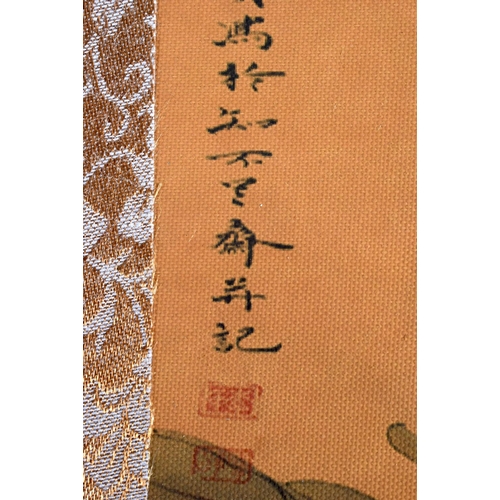 寫於知不足齋并記